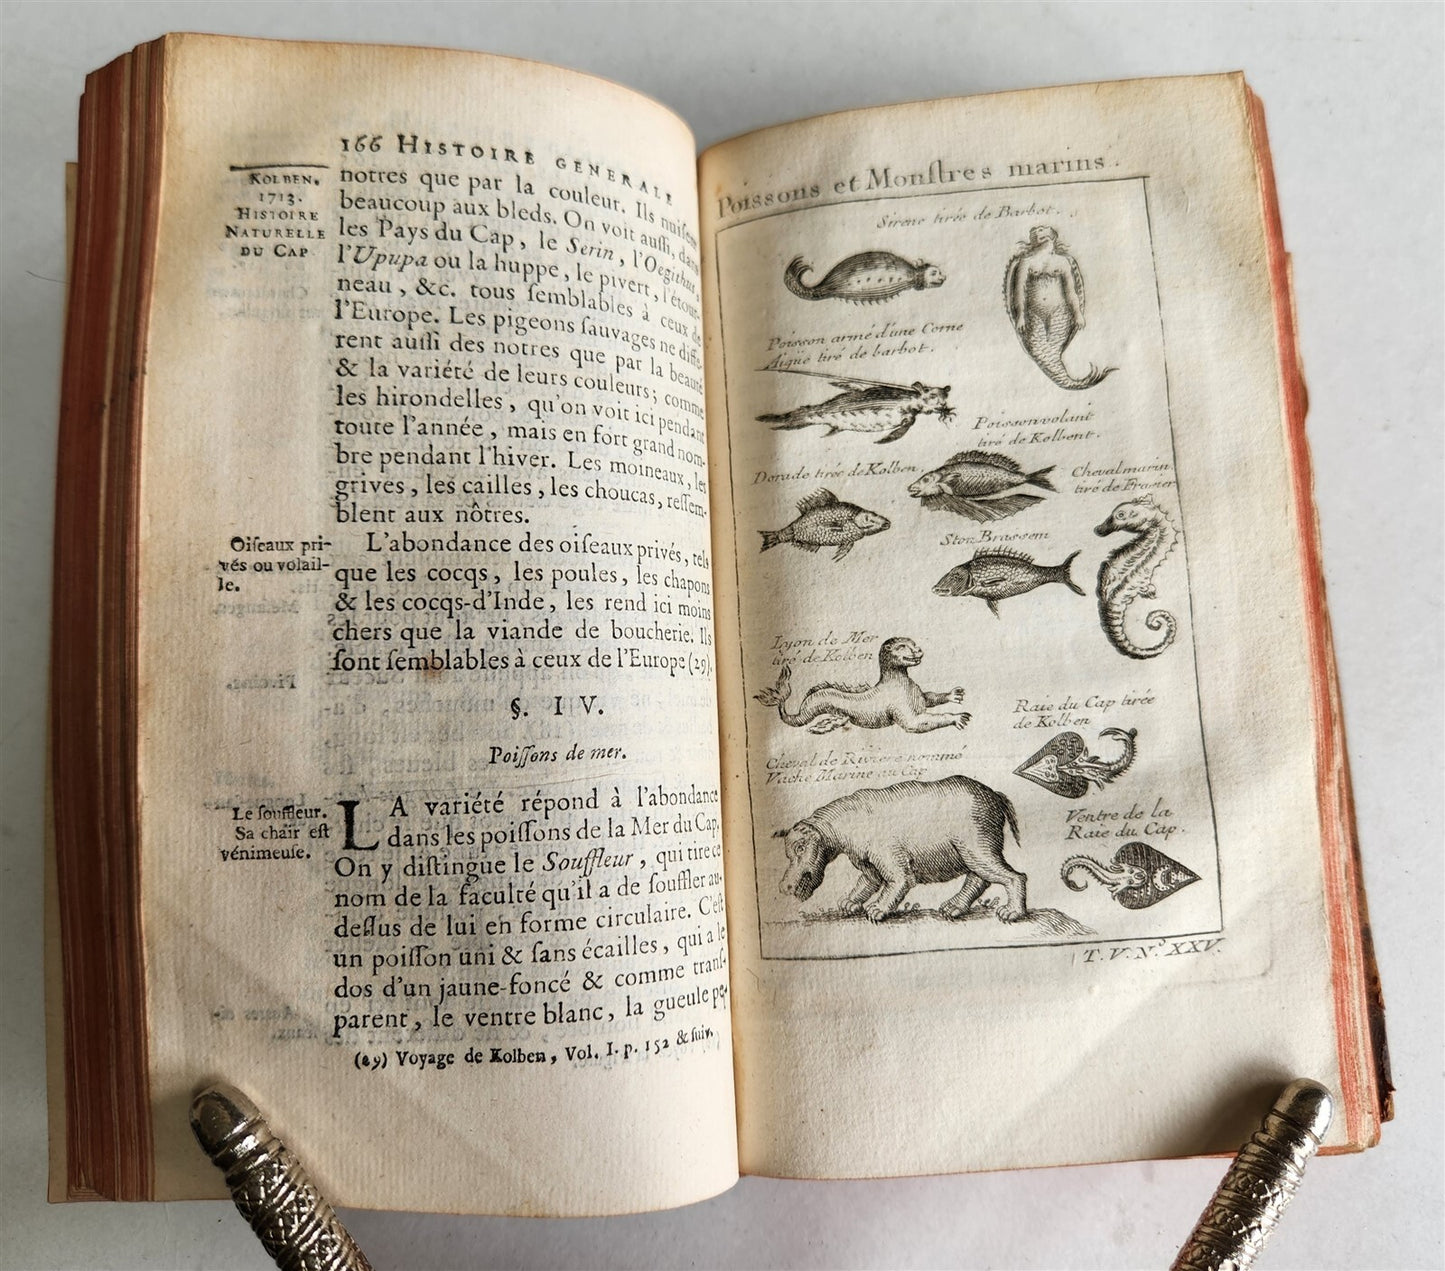 166 HISTOIRE GENERALE
KOLBEN.
1713.
HISTOIRE
NATURELLE
DU CAP
notres que par la couleur. Ils nuisent
beaucoup aux bleds. On voit auſſi, dans
les Pays du Cap, le Serin, l'Oegithus,
l'Upupa ou la huppe, le pivert, l'étour-
neau, &c. tous ſemblables à ceux de
l'Europe. Les pigeons ſauvages ne diffe-
rent auſſi des notres que par la beauté
& la variété de leurs couleurs; comme
les hirondelles, qu'on voit ici pendant
toute l'année, mais en fort grand nom-
bre pendant l'hiver. Les moineaux, les
grives, les cailles, les choucas, reſſem-
blent aux nôtres.
Oiſeaux pri-
vés ou volail-
le.
L'abondance des oiſeaux privés, tels
que les cocqs, les poules, les chapons
& les cocqs-d'Inde, les rend ici moins
chers que la viande de boucherie. Ils
ſont ſemblables à ceux de l'Europe (29).
§. IV.
Poiſſons de mer.
Le ſouffleur.
Sa chair eſt
vénimeuſe.
LA variété répond à l'abondance
dans les poiſſons de la Mer du Cap.
On y diſtingue le Souffleur, qui tire ce
nom de la faculté qu'il a de ſouffler au-
deſſus de lui en forme circulaire. C'eſt
un poiſſon uni & ſans écailles, qui a le
dos d'un jaune-foncé & comme tranſ-
parent, le ventre blanc, la gueule pe-
(29) Voyage de Kolben, Vol. I. p. 152 & ſuiv.
Poissons et Monſtres marins.
Sirene tirée de Barbot.
Poisson armé d'une Corne
Aigüe tiré de barbot.
Poisson volant
tiré de Kolbent.
Dorade tirée de Kolben.
Cheval marin
tiré de Frazier
Ston Brassem
Lyon de Mer
tiré de Kolben
Raie du Cap tirée
de Kolben
Cheval de Riviere nommé
Vache Marine au Cap
Ventre de la
Raie du Cap.
T. V. N.º XXV.